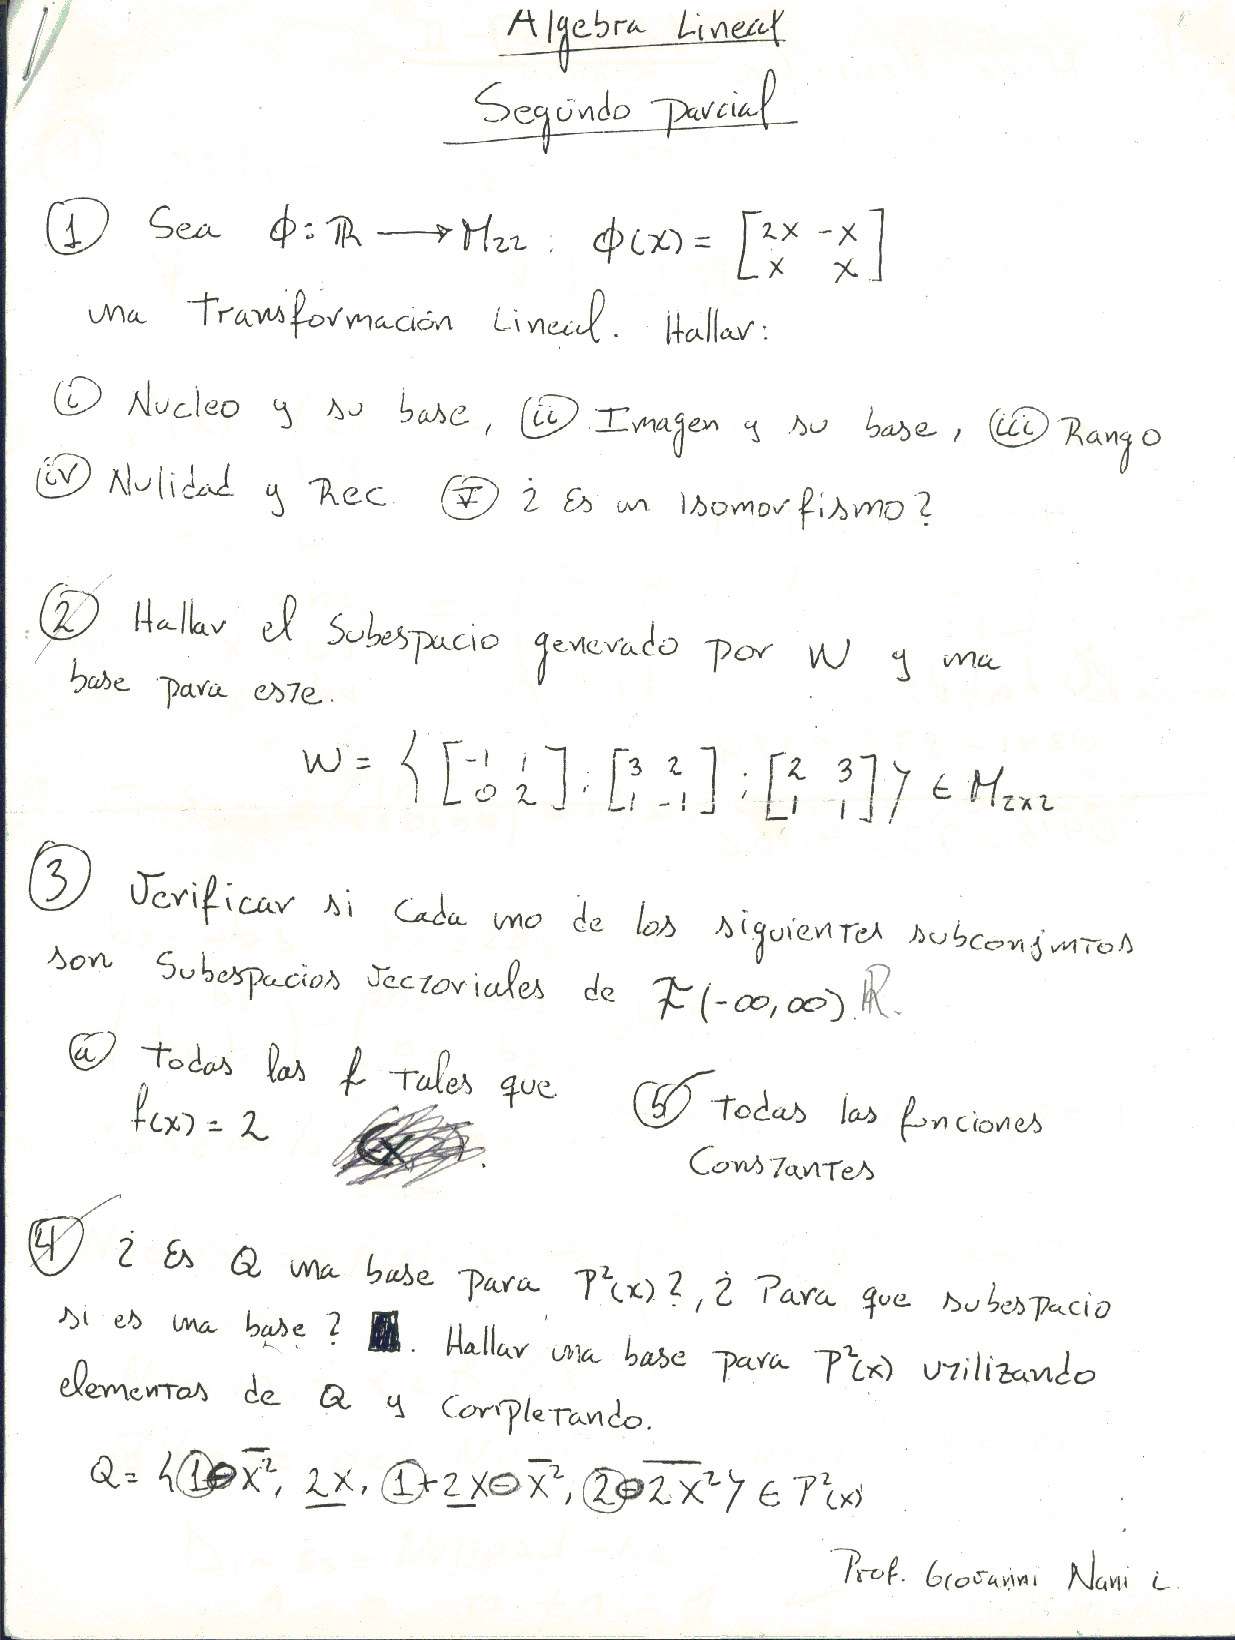 Algebra Lineal
Segundo Parcial
① Sea ϕ: ℝ → M₂₂ : ϕ(x) = [2x -x; x x]
una Transformación Lineal. Hallar:
ⓘ Nucleo y su base, (ii) Imagen y su base, (iii) Rango
(iv) Nulidad y Rec. (V) ¿ Es un Isomorfismo?
② Hallar el Subespacio generado por W y una
base para este.
W = { [-1 1; 0 2] ; [3 2; 1 -1] ; [2 3; 1 1] } ∈ M₂ₓ₂
③ Verificar si cada uno de los siguientes subconjuntos
son Subespacios Vectoriales de F(-∞,∞) ℝ.
ⓐ Todas las f Tales que
f(x) = 2
ⓑ Todas las funciones
Constantes
④ ¿ Es Q una base para P²(x)?, ¿ Para que subespacio
si es una base? . Hallar una base para P²(x) utilizando
elementos de Q y completando.
Q = {1-x², 2x, 1+2x-x², 2-2x²} ∈ P²(x)
Prof. Giovanni Nani L.